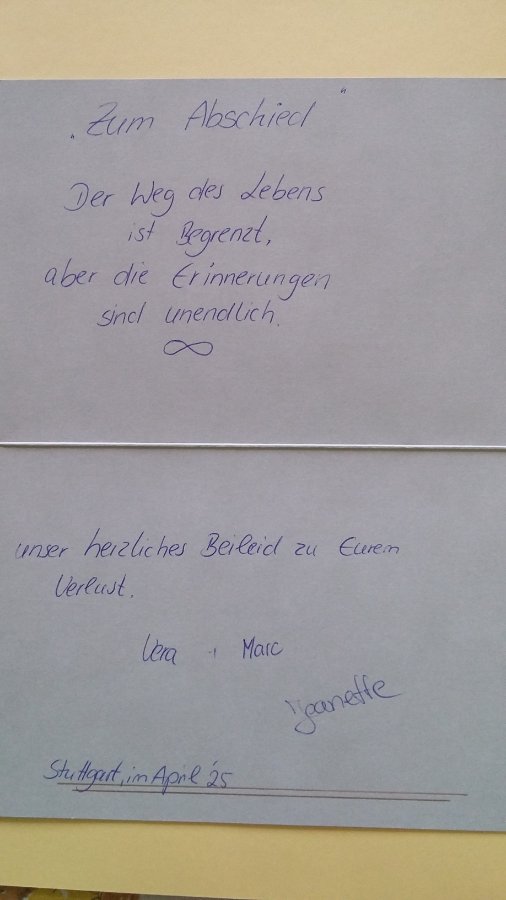 "Zum Abschied"
Der Weg des Lebens
ist Begrenzt,
aber die Erinnerungen
sind unendlich.
∞
unser herzliches Beileid zu Eurem
Verlust.
Vera + Marc
Jeanette
Stuttgart, im April '25